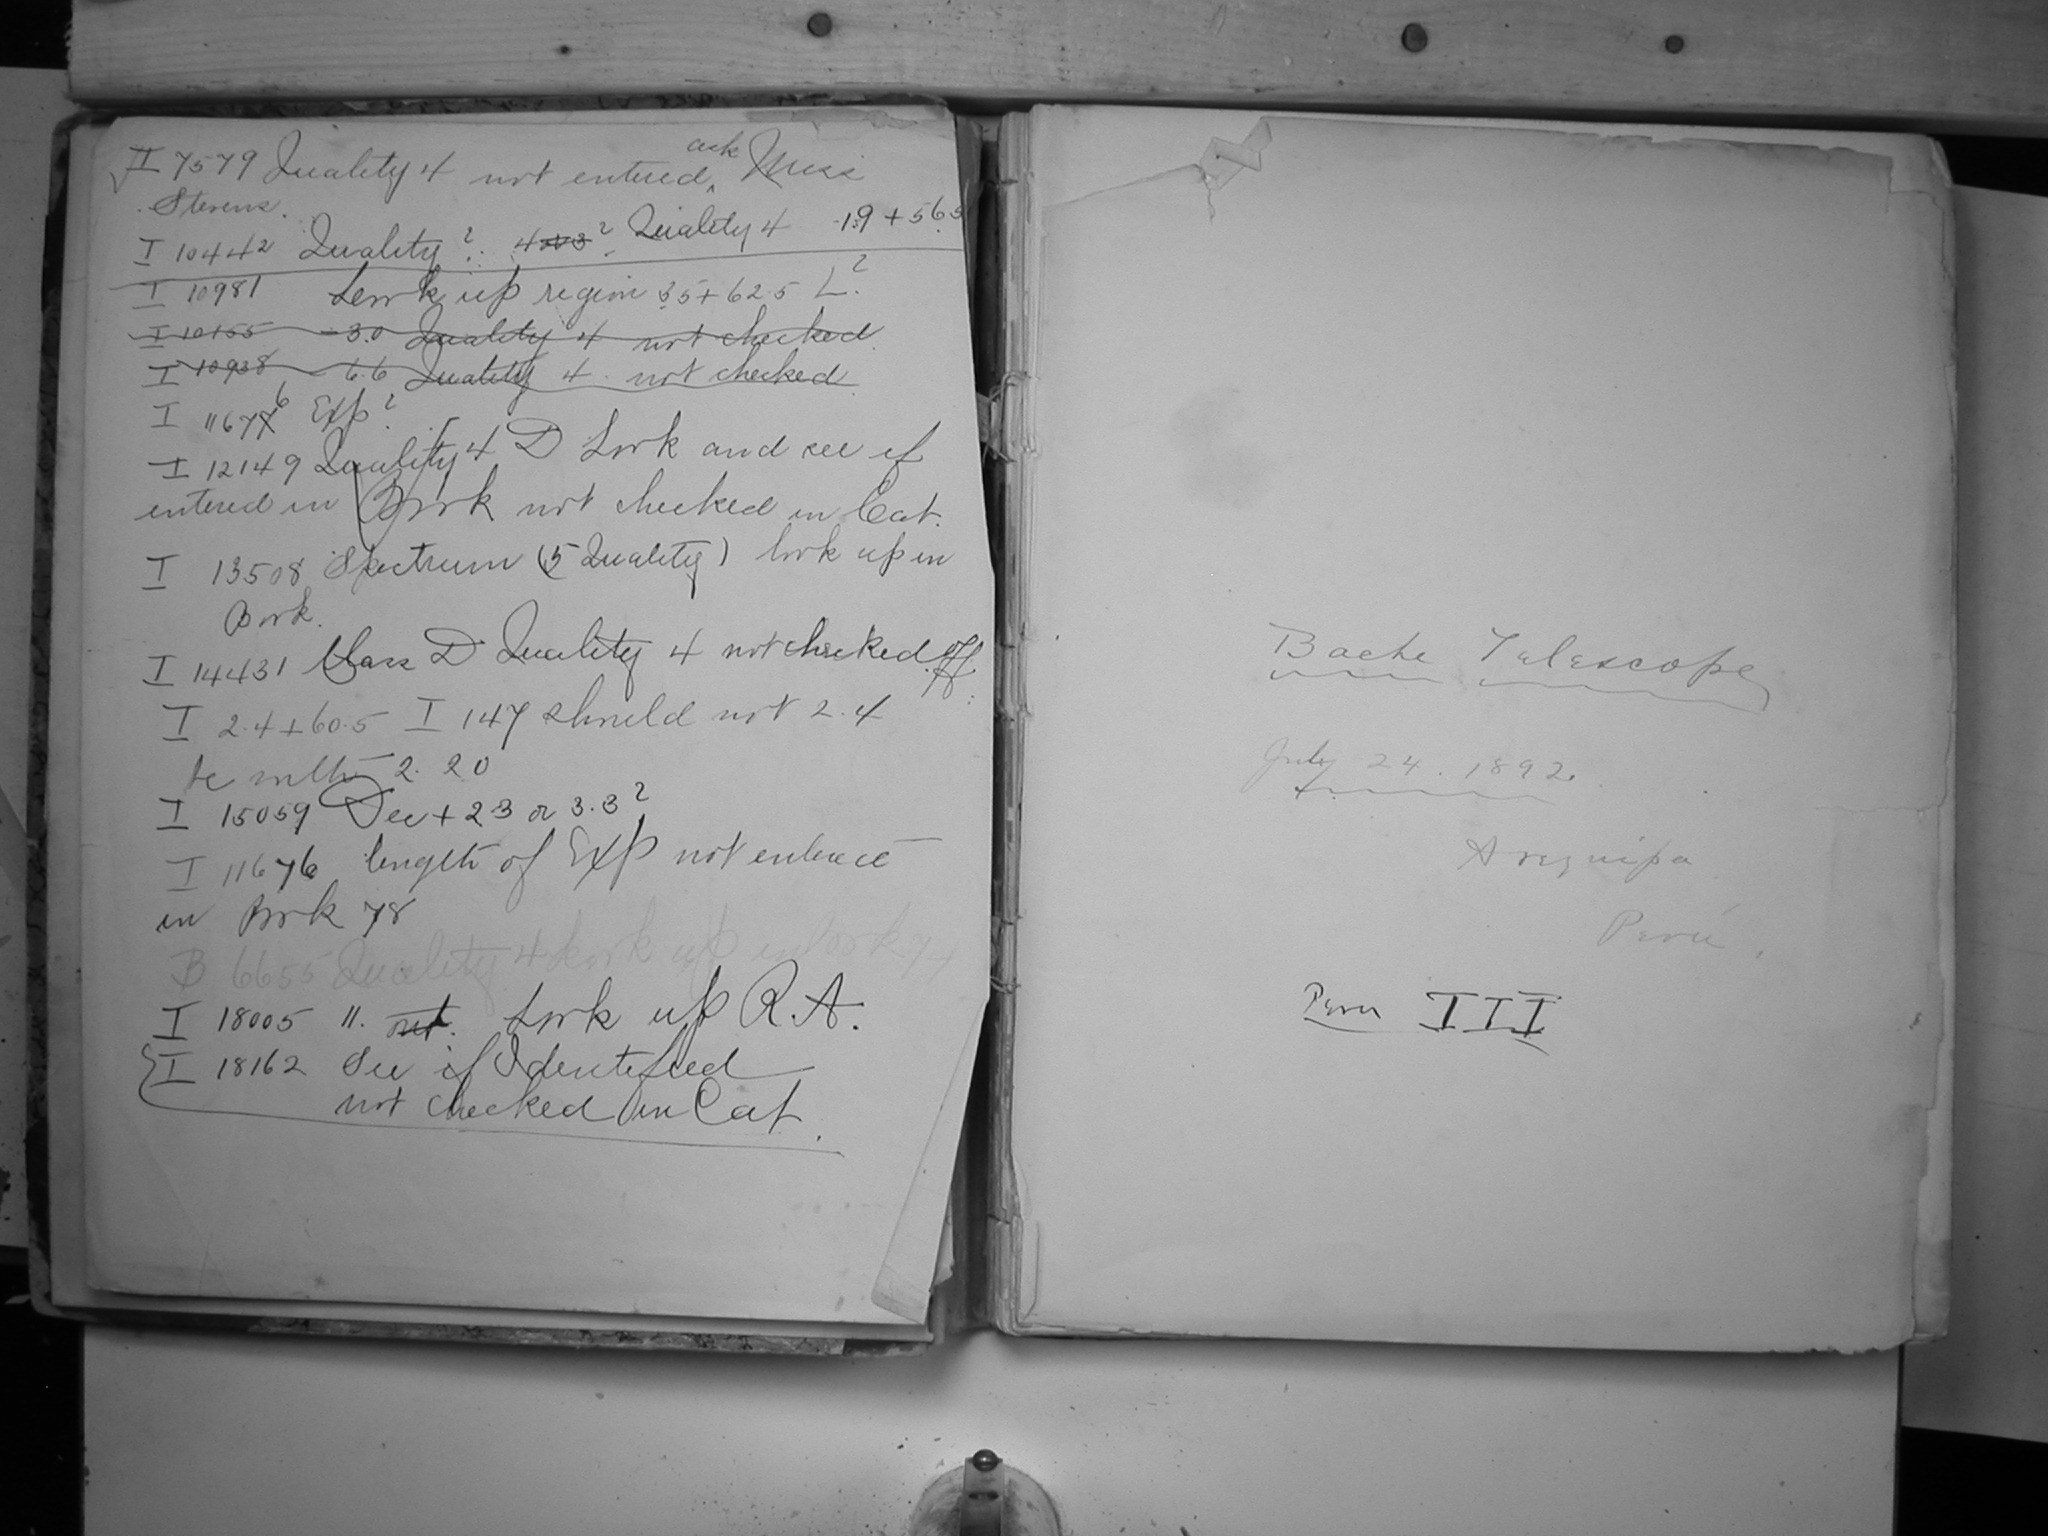 I 7579 Quality 4 not entered, ask Miss
Stevens.
I 10442 Quality? 4 or 3? Quality 4 19 + 56.5
I 10981 Look up region 35 + 62.5 L?
I 10155 - 3.0 Quality 4 not checked.
I 10938 - 6.6 Quality 4. not checked
I 11676 Exp?
I 12149 Quality 4 D Look and see if
entered in Book not checked in Cat.
I 13508 Spectrum (5 Quality) look up in
Book.
I 14431 Class D Quality 4 not checked off.
I 2.4 + 60.5 I 147 should not 2.4
be with 2. 20
I 15059 Dec + 2.3 or 3.3?
I 11676 length of Exp not entered
in Book 78
B 6655 Quality 4 Look up in book 74
I 18005 11. out. Look up R.A.
I 18162 See if Identified
not checked in Cat.
Bache Telescope
July 24. 1892.
Arequipa
Perú,
Peru III